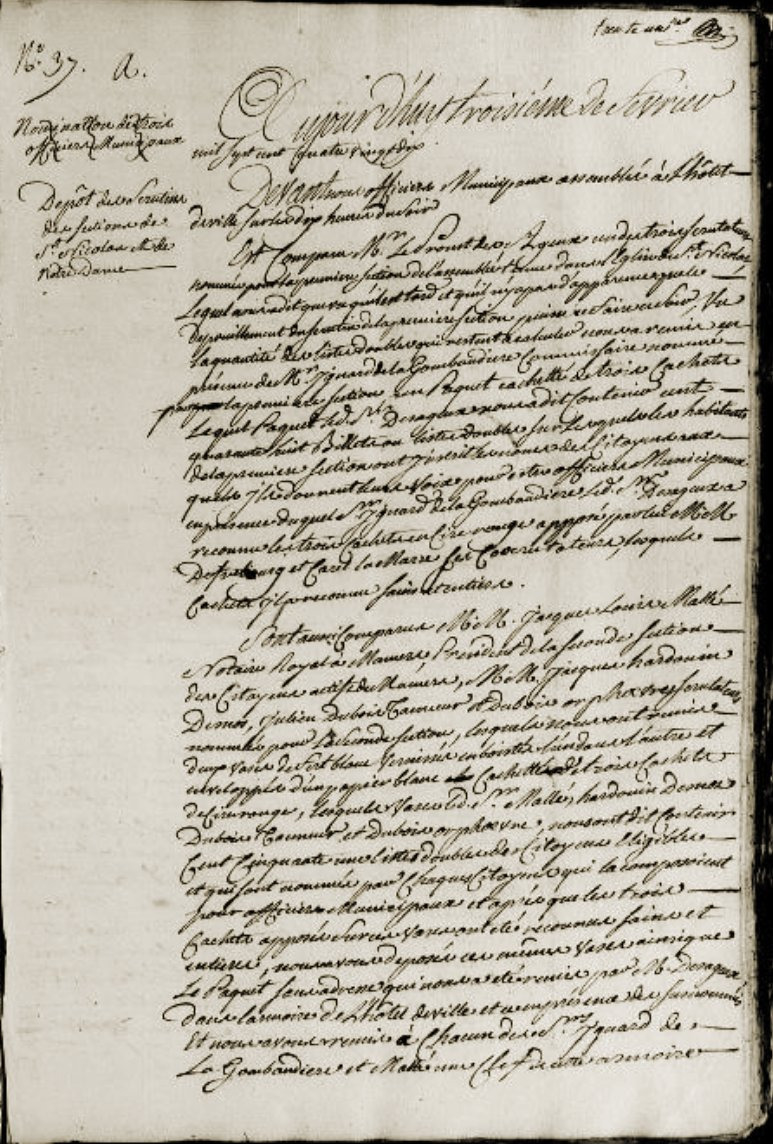 trente un.e
N.o 37. A.
Nomination de trois
officiers Municipaux
Depôt des Scrutins
des sections de
St. Nicolas et de
Notre Dame
Aujourd'huy troisiéme de fevrier
mil sept cent quatre vingt dix
Devant nous officiers Municipaux assemblés à L'hôtel
de ville sur les dix heures du soir
Est Comparu M.r Le Prévost des un des trois scrutateurs
nommés pour la premiere section de l'assemblée tenue dans l'Eglise de St. Nicolas
Lequel nous a dit que vu qu'il est tard et qu'il n'y a pas d'apparence que le
Depouillement du scrutin de la premiere section puisse se faire ce soir, Vu
la quantité des listes doubles qui restent à calculer nous a remis en
présence de M.r Ygnard de la Gombaudiere Commissaire nommé
par la premiere section un Paquet cacheté de trois Cachets
Lequel Paquet led. S.r nous a dit Contenir cent
quarante huit Billets ou listes doubles sur lesquelles les habitants
de la premiere section ont inscrit les noms des Citoyens aux
quels ils donnent leurs voix pour être officiers Municipaux
en présence duquel S.r Ygnard de la Gombaudiere led. S.r a
reconnu les trois Cachets en Cire rouge apposés par lui M.M.
et Caré la Marre ses Coscrutateurs, lesquels
Cachets il a reconnu sains et entiers.
Sont aussi Comparus M.M. Jacques Louis Mallé
Notaire Royal à Mamers President de la seconde section
des Citoyens actifs de Mamers, M.M. Jacques hardouin
Julien Dubois Tanneur et Dubois orphevre scrutateurs
nommés pour la seconde section, lesquels nous ont remis
deux vases de fert blanc emboités l'un dans l'autre et
enveloppés d'un papier blanc Cachetté de trois Cachets
de Cire rouge, lesquels vases led. S.r Mallé, hardouin
Dubois Tanneur et Dubois orphevre, nous ont dit Contenir
Cent Cinquante une listes doubles de Citoyens Eligibles
et qui sont nommés par Chaque Citoyens qui la composoient
pour officiers Municipaux et après que les trois
Cachets apposés sur ces vases ont été reconnus sains et
entiers, nous avons deposé ces mêmes vases ainsi que
Le Paquet sous adresse qui nous a été remis par M.
dans l'armoire de L'hôtel de ville et en présence des susnommés
Et nous avons remis à Chacun des S.rs Ygnard de
La Gombaudiere et Mallé une Clef de cette armoire